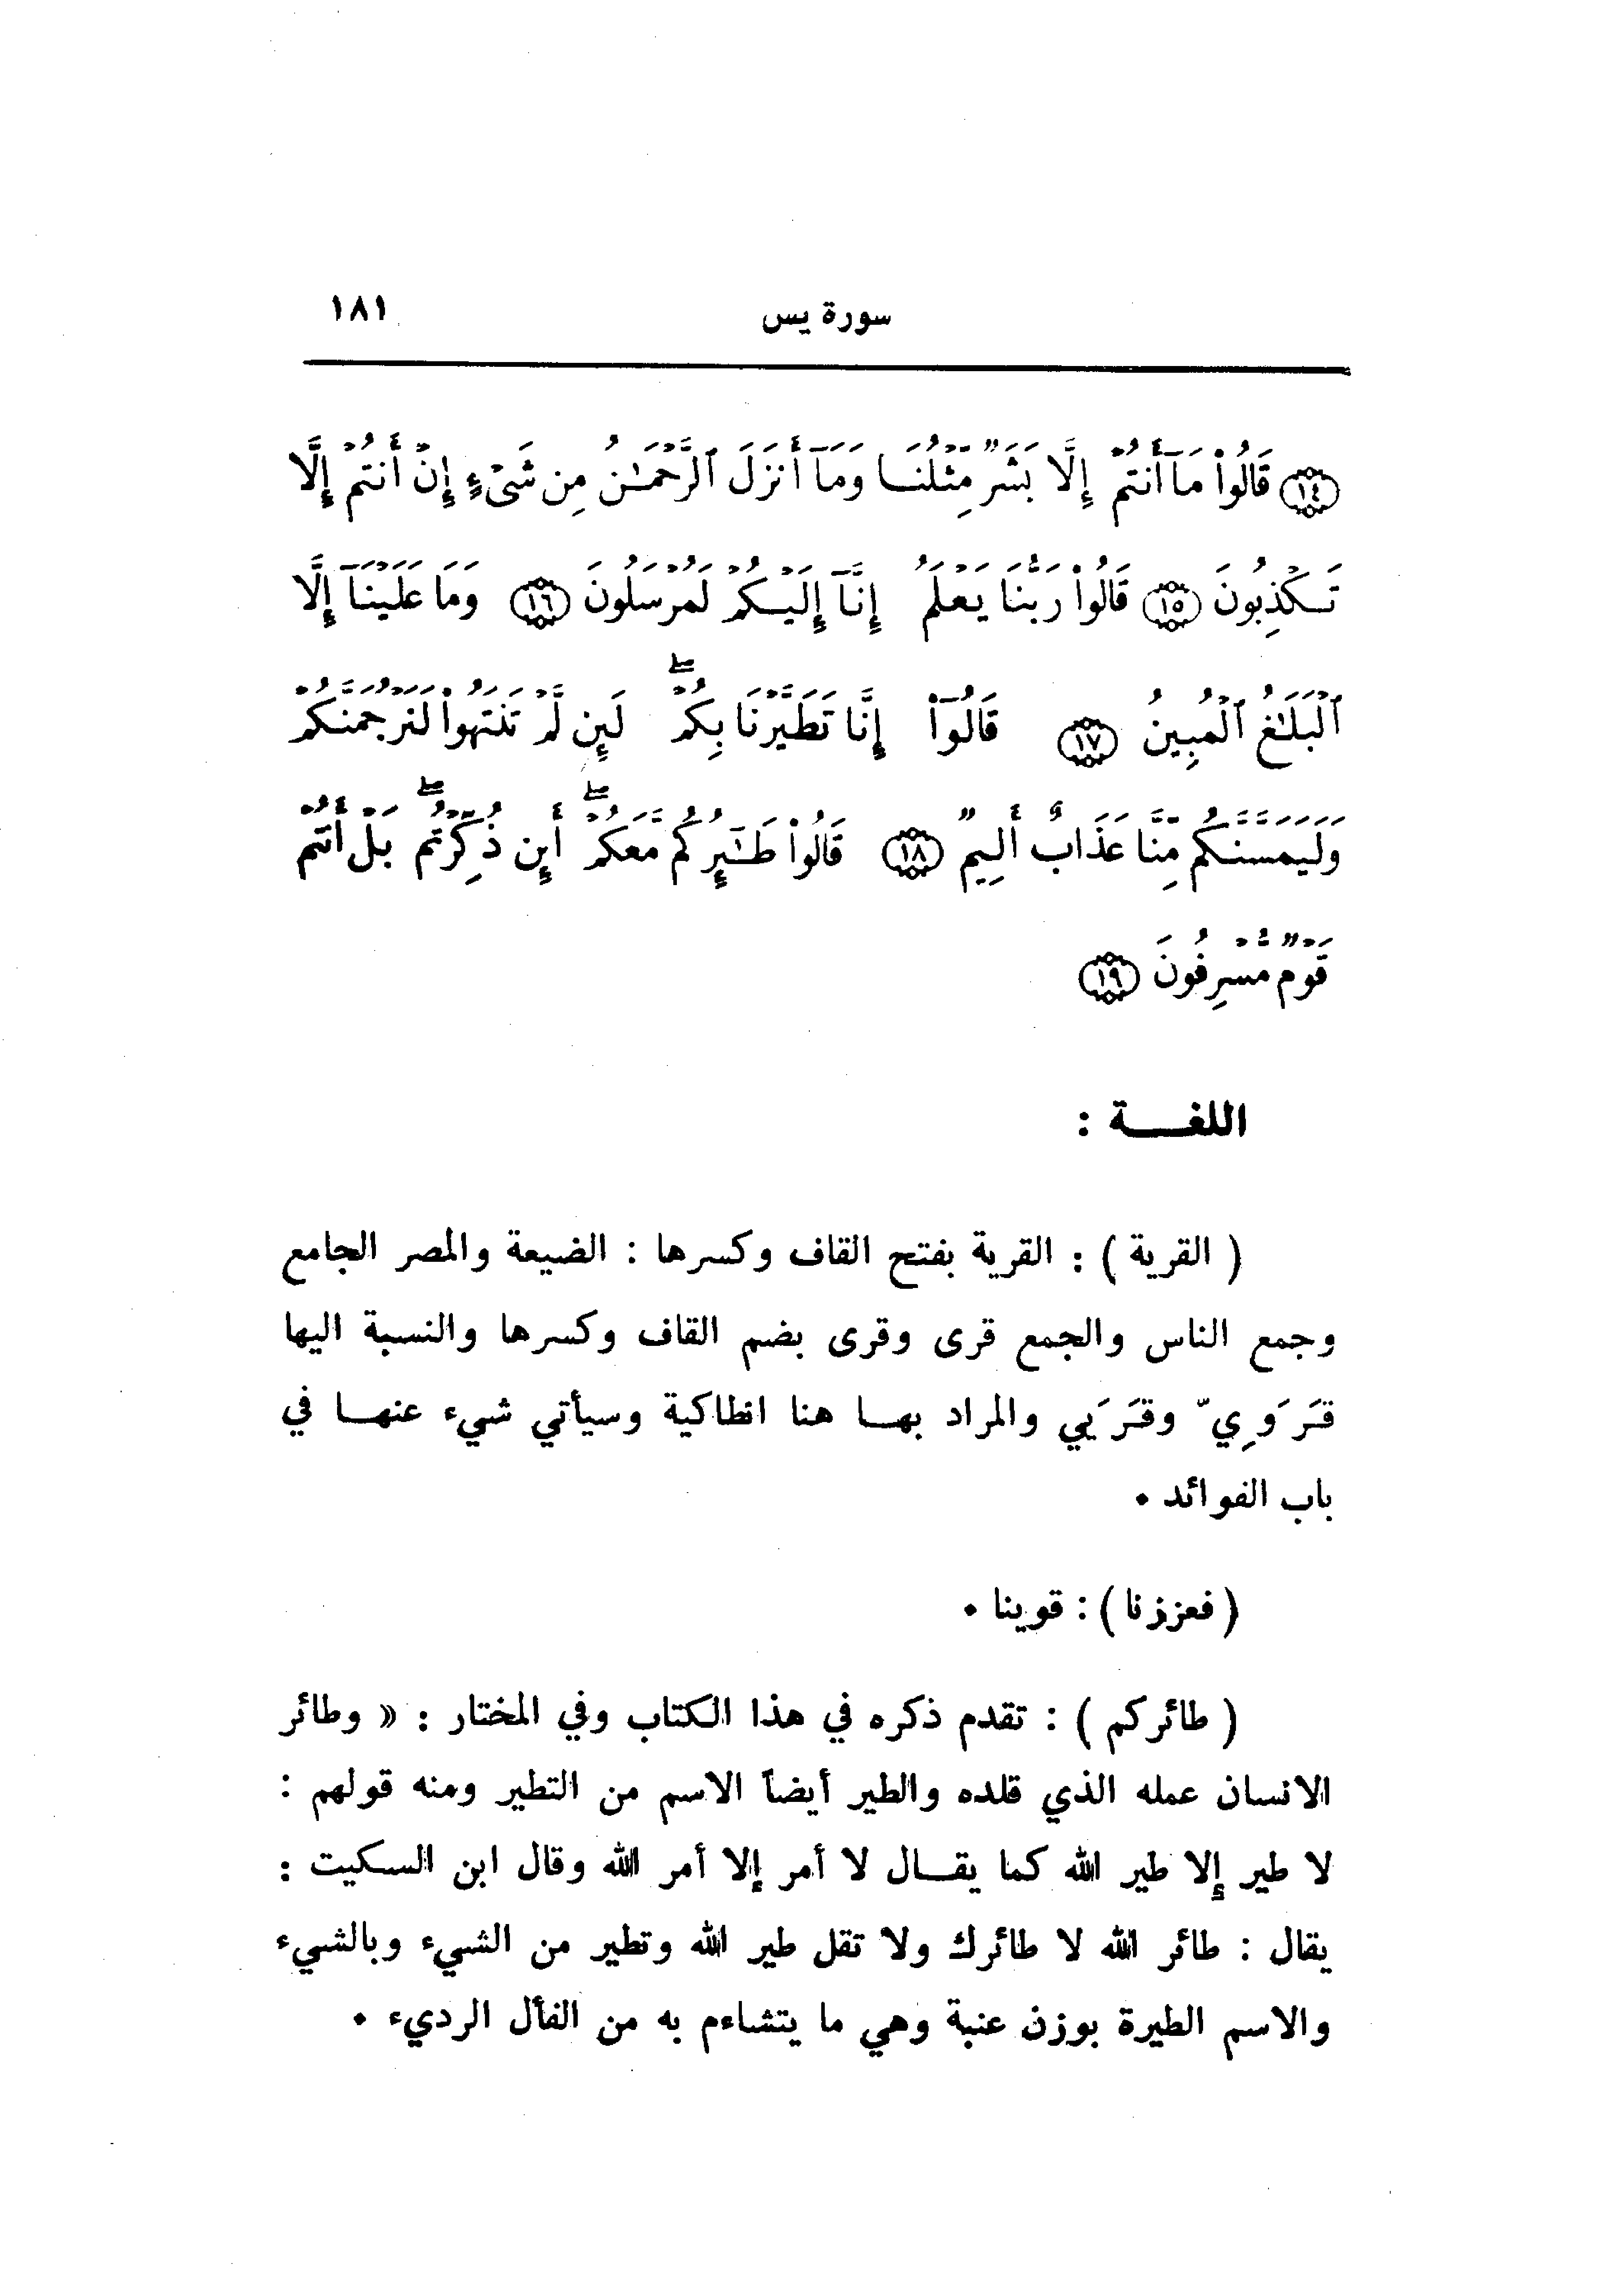 سورة يس ١٨١
﴿١٤﴾ قَالُوا۟ مَآ أَنتُمْ إِلَّا بَشَرٌ مِّثْلُنَا وَمَآ أَنزَلَ ٱلرَّحْمَـٰنُ مِن شَىْءٍ إِنْ أَنتُمْ إِلَّا
تَكْذِبُونَ ﴿١٥﴾ قَالُوا۟ رَبُّنَا يَعْلَمُ إِنَّآ إِلَيْكُمْ لَمُرْسَلُونَ ﴿١٦﴾ وَمَا عَلَيْنَآ إِلَّا
ٱلْبَلَـٰغُ ٱلْمُبِينُ ﴿١٧﴾ قَالُوٓا۟ إِنَّا تَطَيَّرْنَا بِكُمْ ۖ لَئِن لَّمْ تَنتَهُوا۟ لَنَرْجُمَنَّكُمْ
وَلَيَمَسَّنَّكُم مِّنَّا عَذَابٌ أَلِيمٌ ﴿١٨﴾ قَالُوا۟ طَـٰٓئِرُكُم مَّعَكُمْ ۖ أَئِن ذُكِّرْتُم ۖ بَلْ أَنتُمْ
قَوْمٌ مُّسْرِفُونَ ﴿١٩﴾
اللغـــة :
( القرية ) : القرية بفتح القاف وكسرها : الضيعة والمصر الجامع
وجمع الناس والجمع قرى وقرى بضم القاف وكسرها والنسبة اليها
قَرَوِيّ وقَرَيي والمراد بهـا هنا انطاكية وسيأتي شيء عنهـا في
باب الفوائد ٠
( فعززنا ) : قوينا ٠
( طائركم ) : تقدم ذكره في هذا الكتاب وفي المختار : « وطائر
الانسان عمله الذي قلده والطير أيضاً الاسم من التطير ومنه قولهم :
لا طير إلا طير الله كما يقـال لا أمر إلا أمر الله وقال ابن السكيت :
يقال : طائر الله لا طائرك ولا تقل طير الله وتطير من الشيء وبالشيء
والاسم الطيرة بوزن عنبة وهي ما يتشاءم به من الفأل الرديء ٠